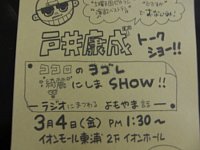 戸井康成
トーク
ショー!!
ココロのヨゴレ
"綺麗"にしま SHOW!!
ラジオにまつわる よもやま話
3月4日(金) PM 1:30〜
イオンモール東浦 2F イオンホール